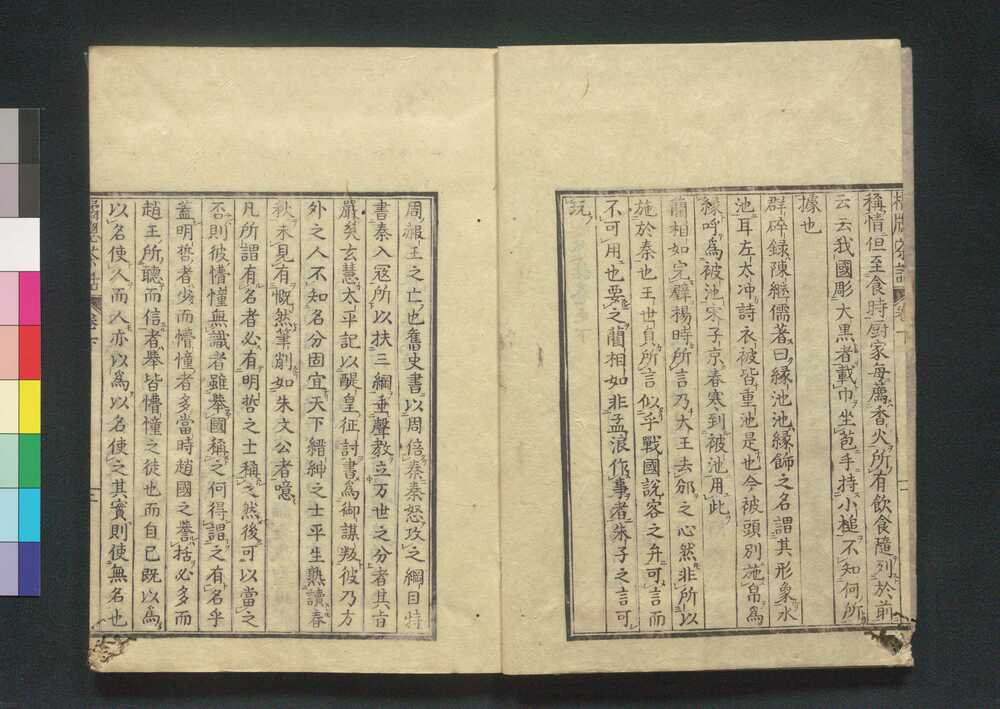 稱情但至食時厨家每薦香火所有飲食隨列於前
云云我國彫大黒者載巾坐苞手持小槌不知何所
據也
群碎録陳繼儒著曰縁池池縁飾之名謂其形象水
池耳左太冲詩衣被皆重池是也今被頭別施帛為
縁呼為被池宋子京春寒到被池用此
藺相如完璧楊時所言乃大王去邠之心然非所以
施於秦也王世貞所言似乎戰國説客之弁可言而
不可用也要之藺相如非孟浪作事者朱子之言可
玩
周赧王之亡也舊史書以周倍秦秦怒攻之綱目特
書秦入寇所以扶三綱垂聲教立万世之分者其旨
嚴矣玄慧太平記以醍皇征討書為御謀叛彼乃方
外之人不知名分固宜天下縉紳之士平生熟讀春
秋未見有慨然筆削如朱文公者噫
凡所謂有名者必有明哲之士稱之然後可以當之
否則彼懵憧無識者雖擧國稱之何得謂之有名乎
蓋明哲者少而懵憧者多當時趙國之譽括必多而
趙王所聽而信者擧皆懵憧之徒也而自已既以為
以名使人而人亦以為以名使之其實則使無名也